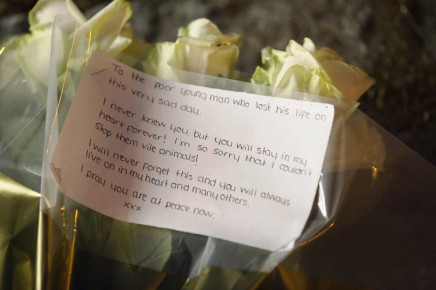 To the poor young man who lost his life on
this very sad day.
I never knew you, but you will stay in my
heart forever! I'm so sorry that I couldn't
stop them vile animals!
I will never forget this and you will always
live on in my heart and many others.
I pray you are at peace now.
xxx